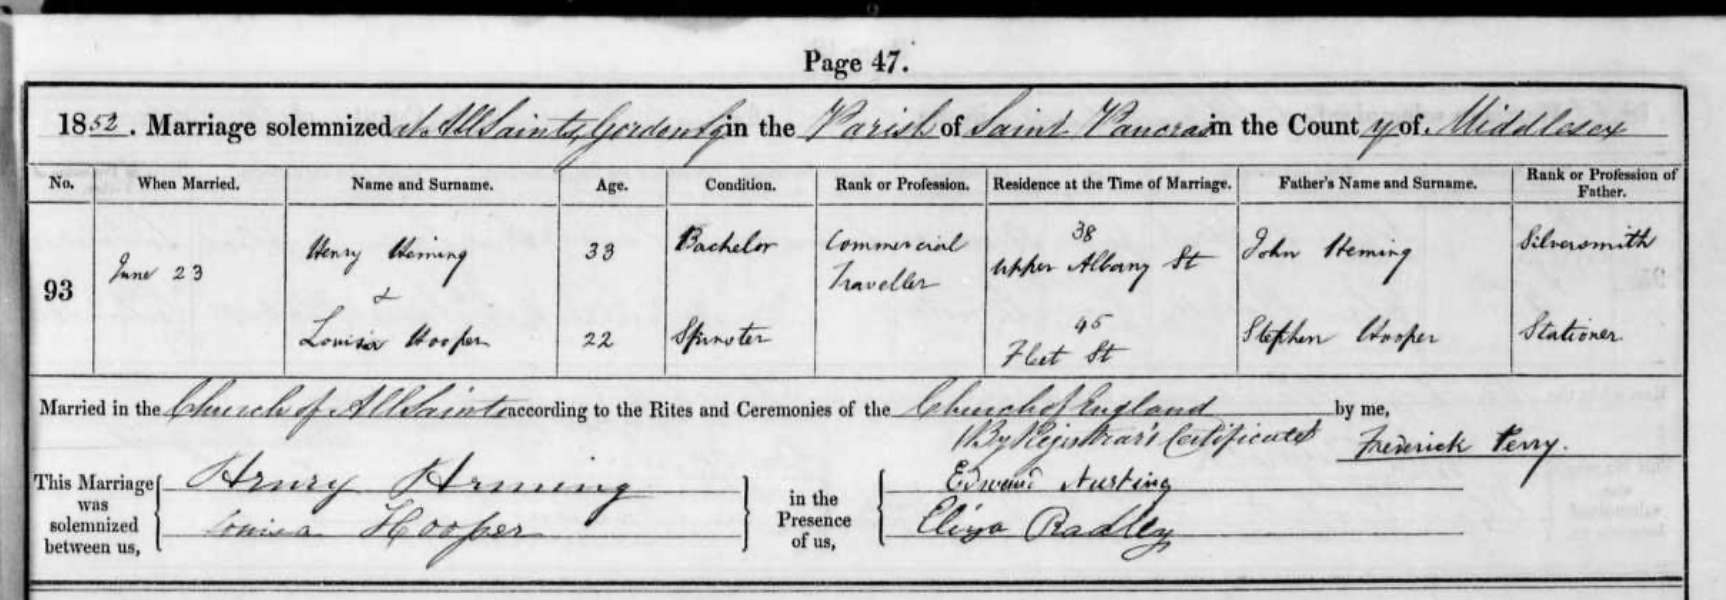 Page 47.
1852. Marriage solemnized at All Saints, Gordon Sq in the Parish of Saint Pancras in the County of Middlesex
No. When Married. Name and Surname. Age. Condition. Rank or Profession. Residence at the Time of Marriage. Father's Name and Surname. Rank or Profession of Father.
93 June 23 Henry Heming 33 Bachelor Commercial Traveller 38 Upper Albany St John Heming Silversmith
&
Louisa Hooper 22 Spinster 45 Fleet St Stephen Hooper Stationer
Married in the Church of All Saints according to the Rites and Ceremonies of the Church of England by me,
By Registrar's Certificate Frederick Perry.
This Marriage was solemnized between us,
Henry Heming
Louisa Hooper
in the Presence of us,
Nutting
Eliza Radley